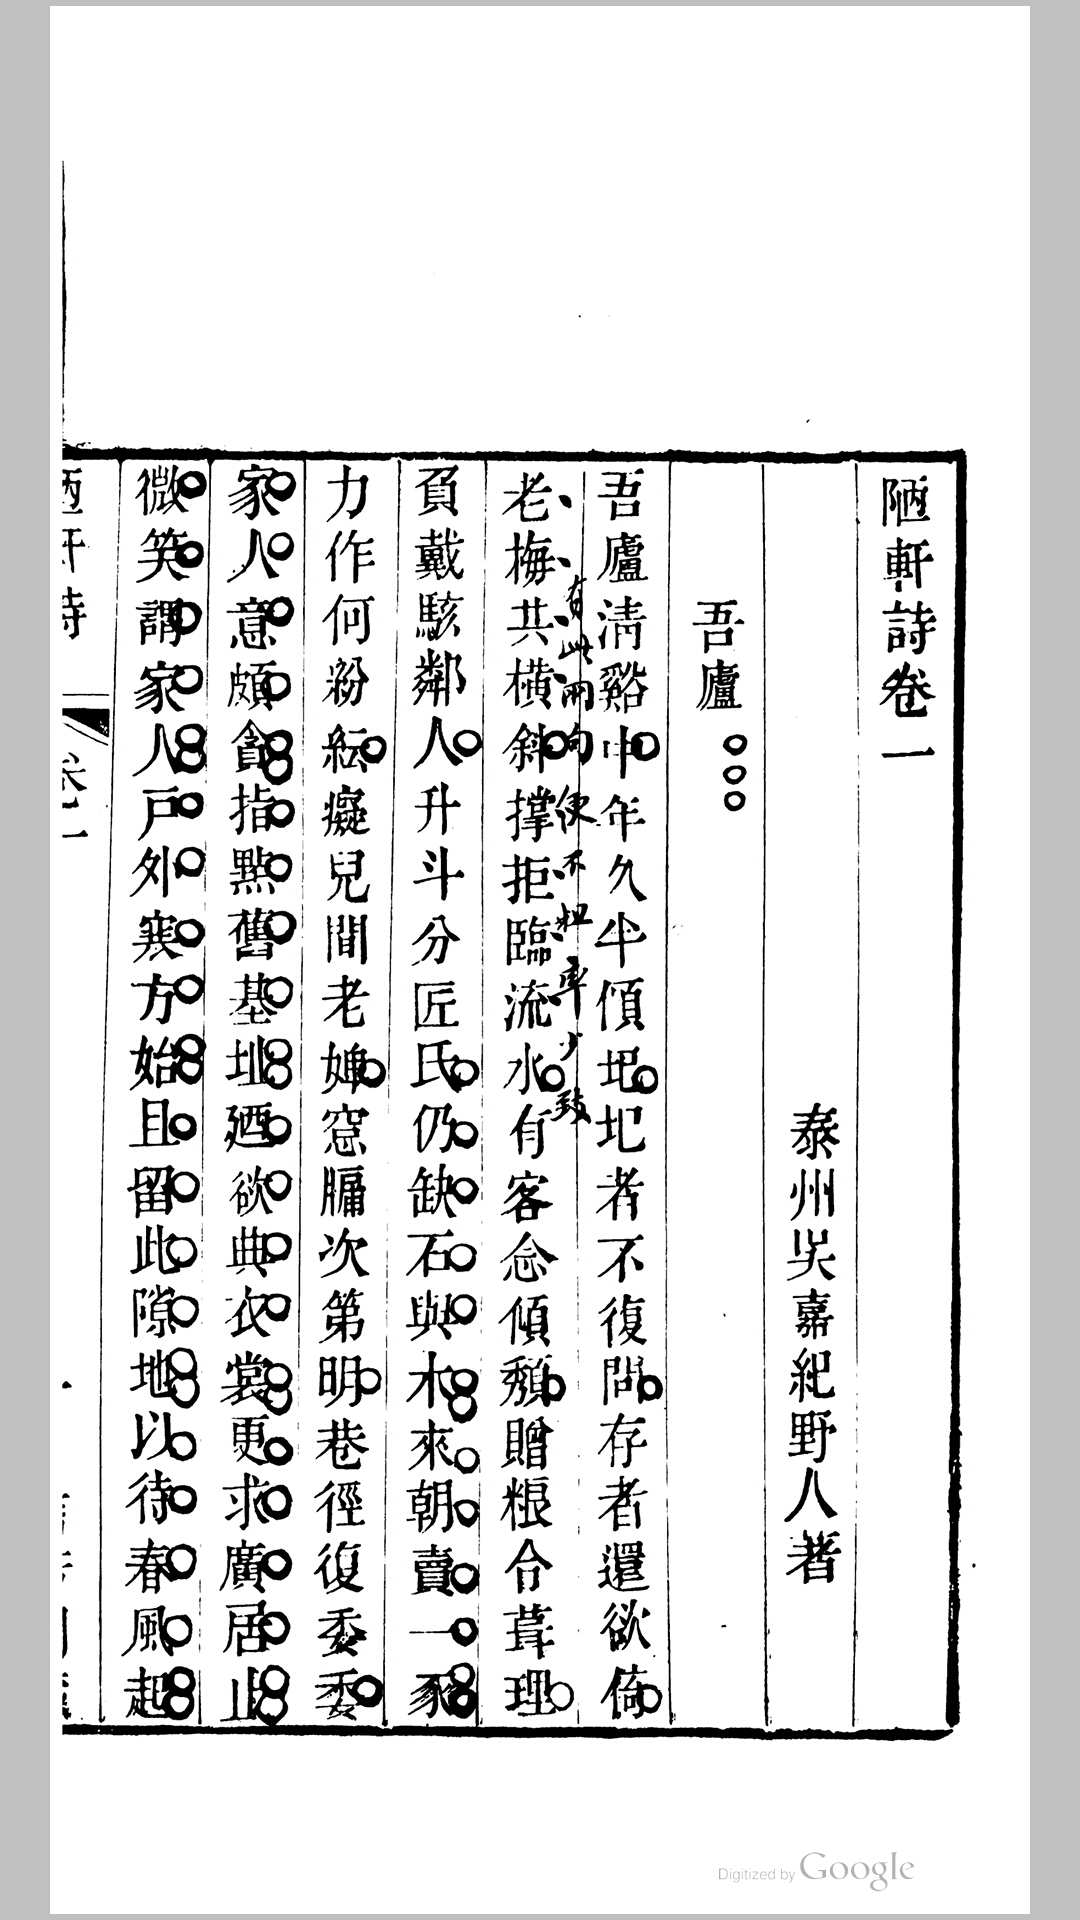 陋軒詩卷一
泰州吳嘉紀野人著
吾廬
吾廬清谿中年久半傾圮圮者不復問存者還欲倚
老梅共橫斜撐拒臨流水有客念傾頹贈粮合葺理
有此兩句便不粗率少致
負戴駭鄰人升斗分匠氏仍缺石與木來朝賣一豕
力作何紛紜癡兒間老婢窓牖次第明巷徑復委委
家人意頗貪指點舊基址廼欲典衣裳更求廣居止
微笑謂家人戶外寒方始且留此隙地以待春風起
陋軒詩
卷一
一
Digitized by Google